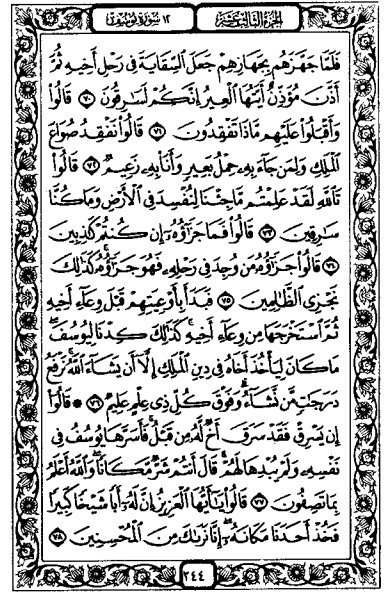 الجزء الثالث عشر
١٢ سورة يوسف
فَلَمَّا جَهَّزَهُم بِجَهَازِهِمْ جَعَلَ السِّقَايَةَ فِي رَحْلِ أَخِيهِ ثُمَّ
أَذَّنَ مُؤَذِّنٌ أَيَّتُهَا الْعِيرُ إِنَّكُمْ لَسَارِقُونَ ٧٠ قَالُوا
وَأَقْبَلُوا عَلَيْهِم مَّاذَا تَفْقِدُونَ ٧١ قَالُوا نَفْقِدُ صُوَاعَ
الْمَلِكِ وَلِمَن جَاءَ بِهِ حِمْلُ بَعِيرٍ وَأَنَا بِهِ زَعِيمٌ ٧٢ قَالُوا
تَاللَّهِ لَقَدْ عَلِمْتُم مَّا جِئْنَا لِنُفْسِدَ فِي الْأَرْضِ وَمَا كُنَّا
سَارِقِينَ ٧٣ قَالُوا فَمَا جَزَاؤُهُ إِن كُنتُمْ كَاذِبِينَ
٧٤ قَالُوا جَزَاؤُهُ مَن وُجِدَ فِي رَحْلِهِ فَهُوَ جَزَاؤُهُ كَذَٰلِكَ
نَجْزِي الظَّالِمِينَ ٧٥ فَبَدَأَ بِأَوْعِيَتِهِمْ قَبْلَ وِعَاءِ أَخِيهِ
ثُمَّ اسْتَخْرَجَهَا مِن وِعَاءِ أَخِيهِ كَذَٰلِكَ كِدْنَا لِيُوسُفَ
مَا كَانَ لِيَأْخُذَ أَخَاهُ فِي دِينِ الْمَلِكِ إِلَّا أَن يَشَاءَ اللَّهُ نَرْفَعُ
دَرَجَاتٍ مَّن نَّشَاءُ وَفَوْقَ كُلِّ ذِي عِلْمٍ عَلِيمٌ ٧٦ ۞ قَالُوا
إِن يَسْرِقْ فَقَدْ سَرَقَ أَخٌ لَّهُ مِن قَبْلُ فَأَسَرَّهَا يُوسُفُ فِي
نَفْسِهِ وَلَمْ يُبْدِهَا لَهُمْ قَالَ أَنتُمْ شَرٌّ مَّكَانًا وَاللَّهُ أَعْلَمُ
بِمَا تَصِفُونَ ٧٧ قَالُوا يَا أَيُّهَا الْعَزِيزُ إِنَّ لَهُ أَبًا شَيْخًا كَبِيرًا
فَخُذْ أَحَدَنَا مَكَانَهُ إِنَّا نَرَاكَ مِنَ الْمُحْسِنِينَ ٧٨
٢٤٤